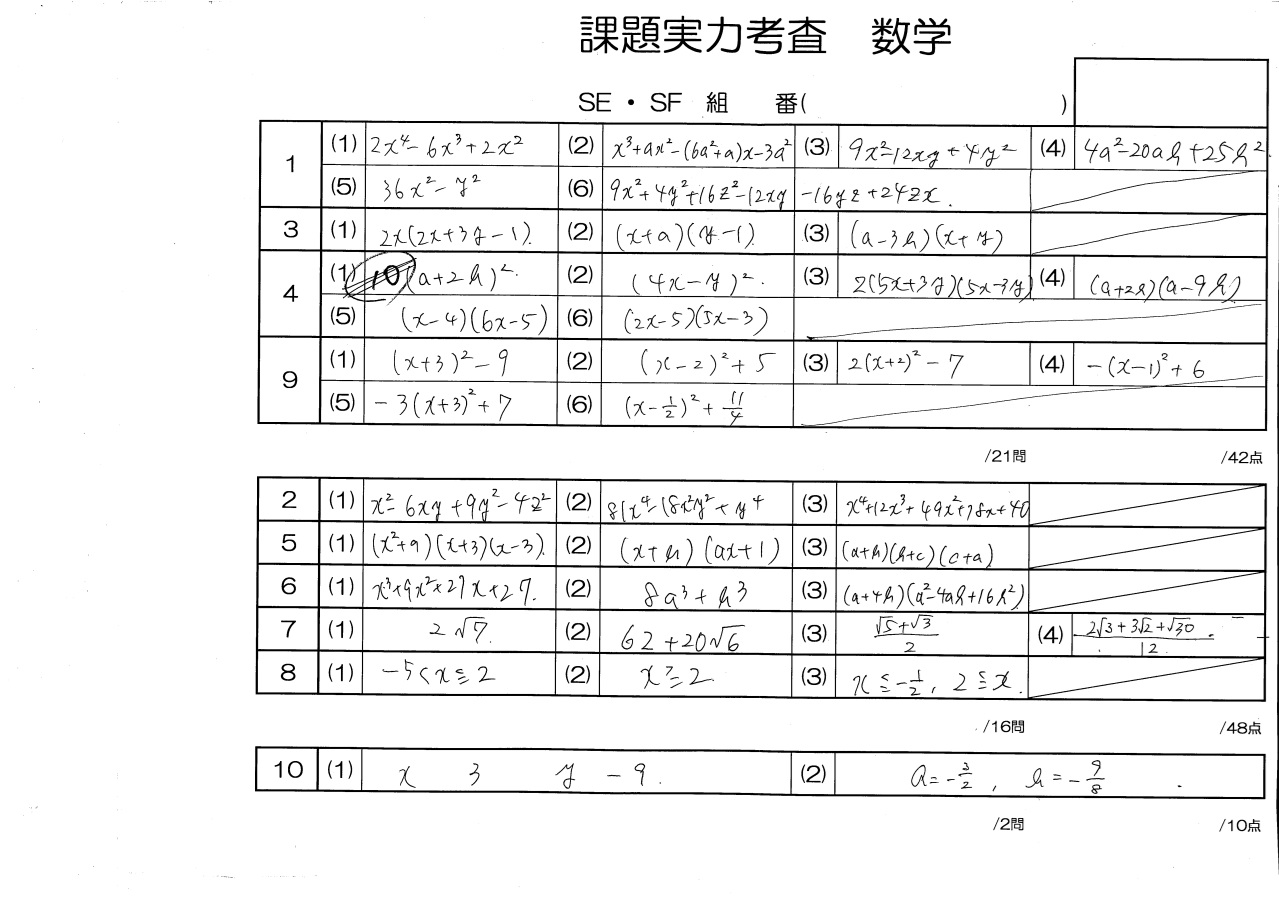 課題実力考査 数学
SE・SF 組 番( )
1 (1) 2x⁴-6x³+2x² (2) x³+ax²-(6a²+a)x-3a² (3) 9x²-12xy+4y² (4) 4a²-20ab+25b²
(5) 36x²-y² (6) 9x²+4y²+16z²-12xy-16yz+24zx.
3 (1) 2x(2x+3y-1). (2) (x+a)(y-1). (3) (a-3b)(x+y)
4 (1) (a+2b)². (2) (4x-y)². (3) 2(5x+3y)(5x-3y) (4) (a+2b)(a-9b)
(5) (x-4)(6x-5) (6) (2x-5)(3x-3)
9 (1) (x+3)²-9 (2) (x-2)²+5 (3) 2(x+2)²-7 (4) -(x-1)²+6
(5) -3(x+3)²+7 (6) (x-1/2)²+11/4
/21問 /42点
2 (1) x²-6xy+9y²-4z² (2) 81x⁴-18x²y²+y⁴ (3) x⁴+12x³+49x²+78x+40
5 (1) (x²+9)(x+3)(x-3). (2) (x+b)(ax+1) (3) (a+b)(b+c)(c+a)
6 (1) x³+9x²+27x+27. (2) 8a³+b³ (3) (a+4b)(a²-4ab+16b²)
7 (1) 2√7. (2) 62+20√6 (3) (√5+√3)/2 (4) (2√3+3√2+√30)/12.
8 (1) -5<x≦2 (2) x≧2 (3) x≦-1/2, 2≦x.
/16問 /48点
10 (1) x 3 y -9. (2) a=-3/2, b=-9/8.
/2問 /10点